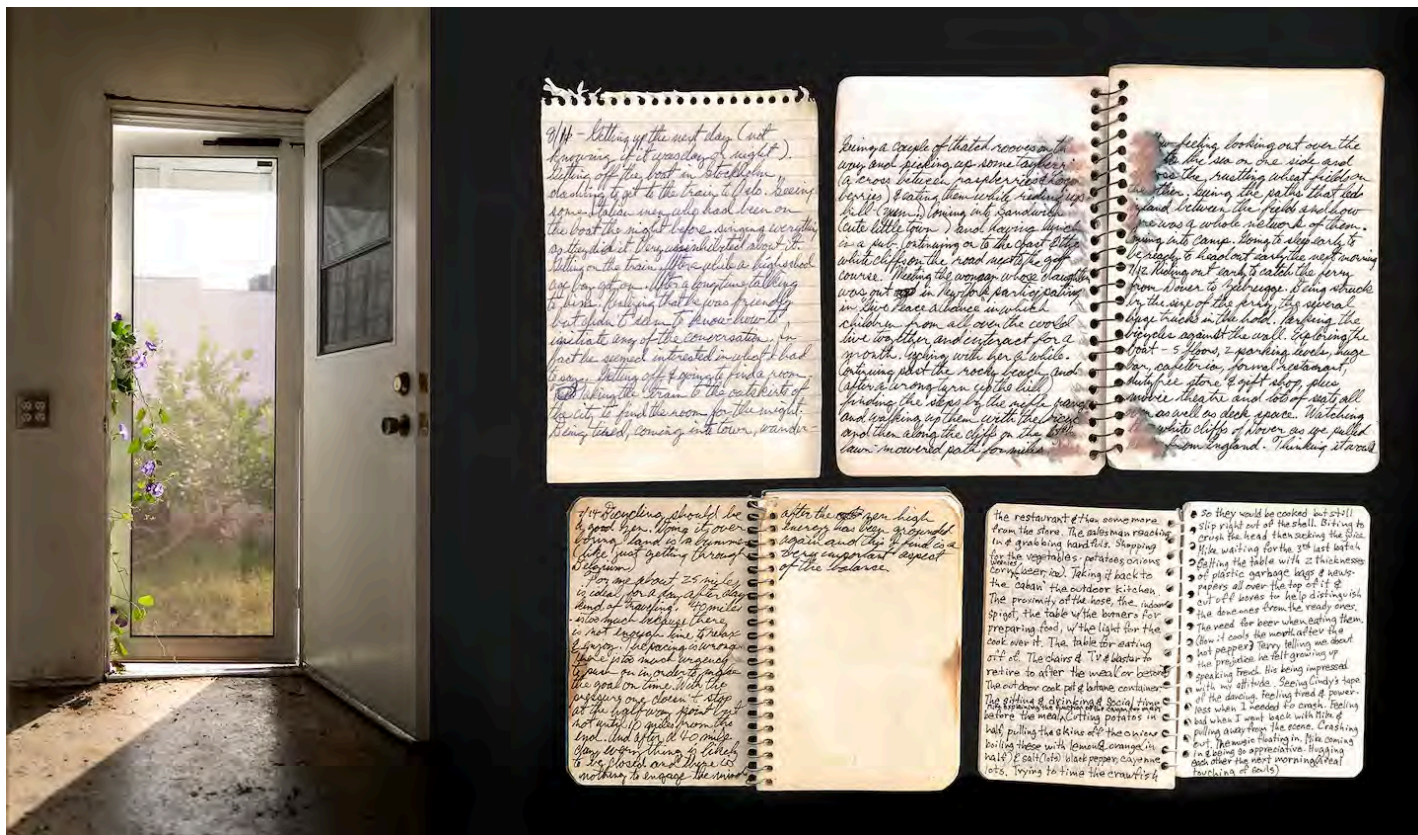 9/14 - Getting up the next day (not
knowing if it was day or night).
Getting off the boat in Stockholm
dashing to get to the train to Oslo. Seeing
some station men who had been on
the boat the night before singing everything
as they did it. Very uninhibited about it.
Getting on the train. After a while a high school
age boy got on. After a long time talking
to him. Realizing that he was friendly
but didn't seem to know how to
initiate any of the conversation. In
fact he seemed interested in what I had
to say. Getting off & going to find a room.
Taking the train to the outskirts of
the city to find the room for the night.
Being tired, coming into town, wander-
Seeing a couple of thatch rooves on the
way and picking up some tayberries
(a cross between raspberries &
berries) & eating them while riding up
hill (yum!) Coming into Sandwich
(cute little town) and having lunch
in a pub. Continuing on to the coast & the
white cliffs on the road next to the golf
course. Meeting the woman whose daughter
was out in New York participating
in this Peace alliance in which
children from all over the world
live together and interact for a
month. Talking with her a while.
Continuing past the rocky beach and
(after a wrong turn up the hill)
finding the steps by the rifle range
and walking up them with the bicycle
and then along the cliff on the
lawn-mowered path for miles
feeling looking out over the
to the sea on one side and
the rustling wheat fields on
the other. Seeing the paths that led
and between the fields and how
there was a whole network of them.
Coming into camp. Going to sleep early to
be ready to head out early the next morning
7/2 Riding out early to catch the ferry
from Dover to Zebrugge. Being struck
by the size of the ferry, the several
huge trucks in the hold. Parking the
bicycles against the wall. Exploring the
boat - 5 floors, 2 parking levels, huge
bar, cafeteria, formal restaurant,
duty free store & gift shop, plus
movie theatre and lots of seats all
as well as deck space. Watching
white cliffs of Dover as we pulled
from England. Thinking it was
7/14 Bicycling should be
a good zen. Doing it over
boring land is a bummer
(like just getting through
Belgium)
For me about 25 miles
is ideal for a day after day
kind of traveling. 40 miles
is too much because there
is not enough time to relax
& enjoy. The pacing is wrong
there is too much urgency
to push on in order to make
the goal on time. With the
pressure one doesn't stop
at the half way point but
not until 10 miles from the
end. And after a 40 mile
day everything is likely
to be closed and there is
nothing to engage the mind
after the zen high
Energy has been grounded
again and this I find is a
very important aspect
of the balance.
the restaurant & then some more
from the store. The salesman reacting
in & grabbing handfuls. Shopping
for the vegetables - potatoes, onions
corn, beer, ice). Taking it back to
the "caban" the outdoor kitchen.
The proximity of the hose, the indoor
spigot, the table w/ the burners for
preparing food, w/ the light for the
cook over it. The table for eating
off of. The chairs & TV & blaster to
retire to after the meal or before.
The outdoor cook pit & butane container.
The sitting & drinking & social time
before the meal. Cutting potatos in
half, pulling the skins off the onions
boiling these with lemon & orange in
half) & salt (lots) black pepper, cayenne
lots. Trying to time the crawfish
so they would be cooked but still
slip right out of the shell. Biting to
crush the head then sucking the juice.
Mike waiting for the 3rd last batch
Setting the table with 2 thicknesses
of plastic garbage bags & news-
papers all over the top of it &
cut off boxes to help distinguish
the done ones from the ready ones.
The need for beer when eating them.
(How it cools the mouth after the
hot pepper) Terry telling me about
the prejudice he felt growing up
speaking French. His being impressed
with my attitude. Seeing Cindy's tape
of the dancing. Feeling tired & power-
less when I needed to crash. Feeling
bad when I went back with Mike &
pulling away from the scene. Crashing
out. The music floating in. Mike coming
in & being so appreciative. Hugging
each other the next morning (a real
touching of souls)